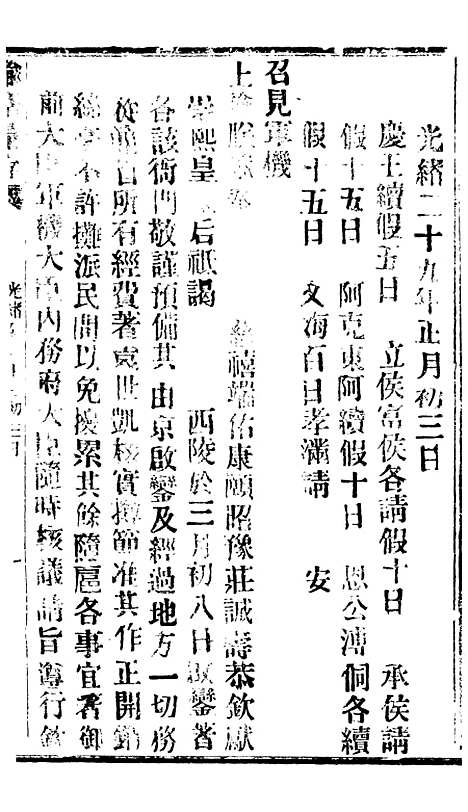 光緒二十九年正月初三日
慶王續假五日　立侯富侯各請假十日　承侯請
假十五日　阿克東阿續假十日　恩公溥侗各續
假十五日　文海百日孝滿請　安
召見軍機
上諭朕欽奉　慈禧端佑康頤昭豫莊誠壽恭欽獻
崇熙皇　后祇謁　西陵於三月初八日啟鑾著
各該衙門敬謹預備其由京啟鑾及經過地方一切務
從節省所有經費著袁世凱核實撙節准其作正開銷
絲毫不許攤派民間以免擾累其餘隨扈各事宜著御
前大臣軍機大臣內務府大臣隨時核議請旨遵行欽
光緒　初三日